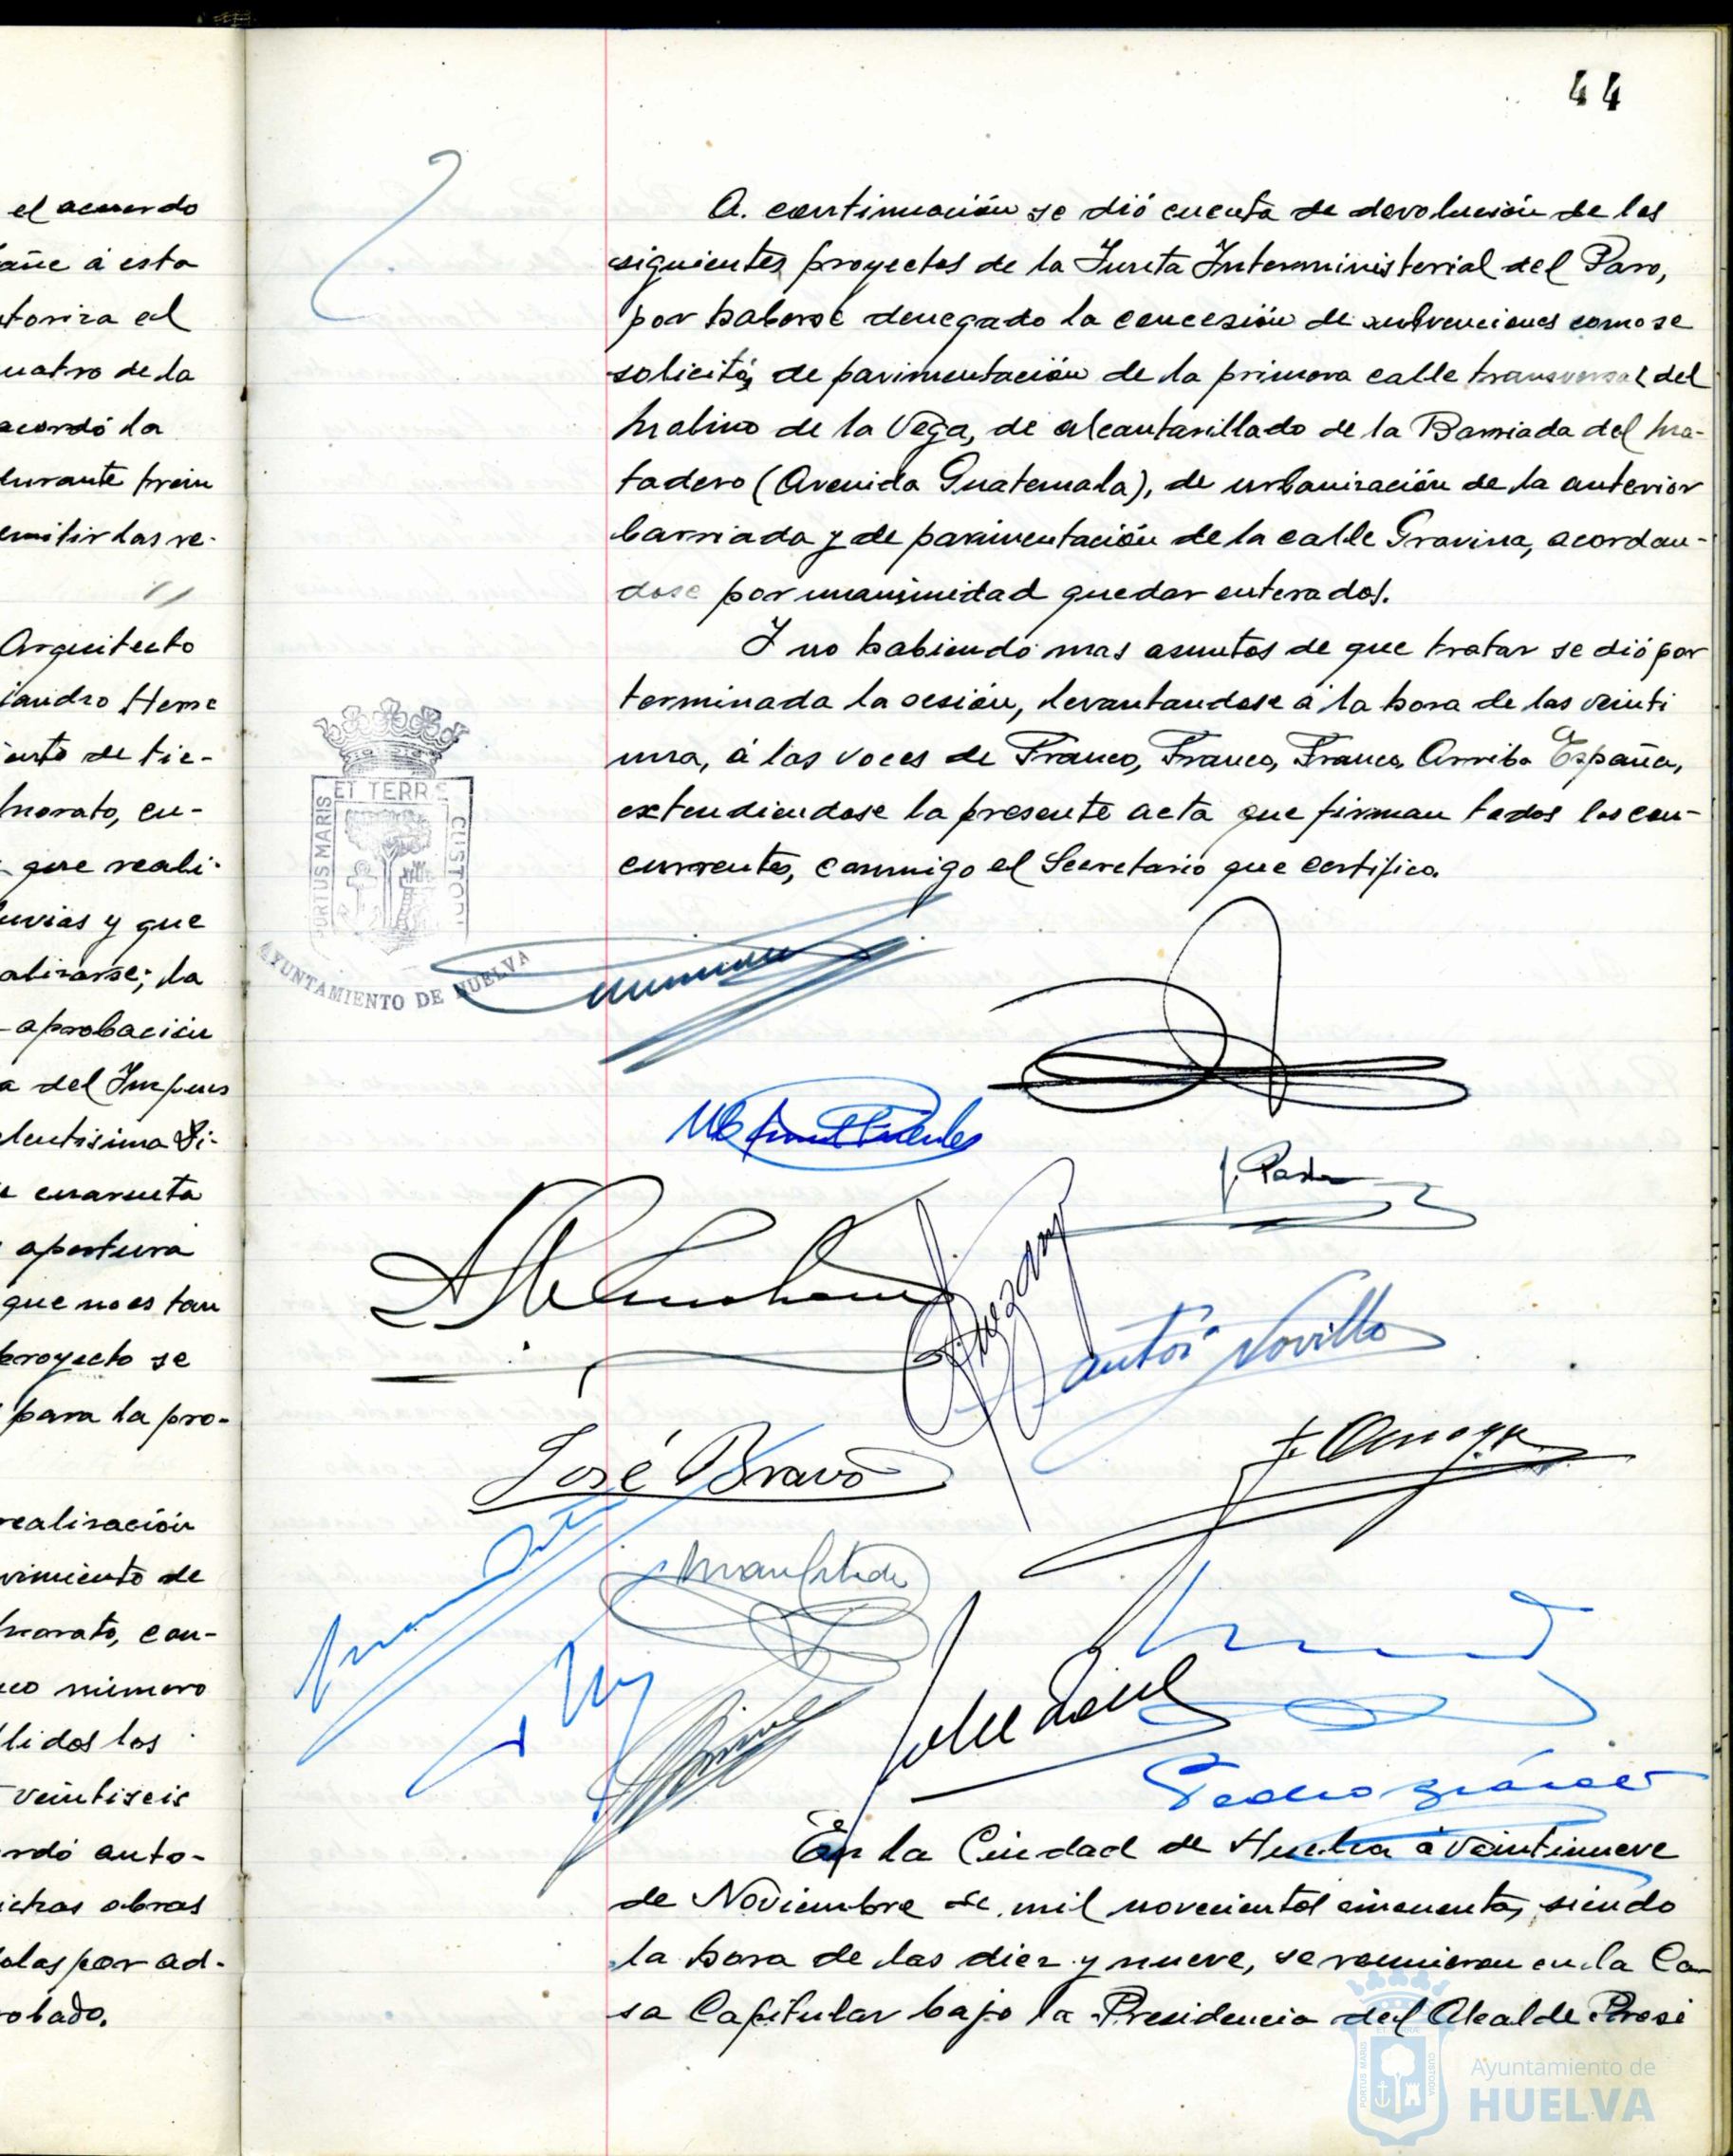 44
el acuerdo
añe á esta
toriza al
uatro de la
acordó la
durante trein
emitir las re-
Arquitecto
jandro Herre
iento de tie-
Morato, en-
que reali-
luvias y que
alizarse; la
aprobación
a del Impues
lentisima Di-
cuarenta
apertura
que no es tan
proyecto se
para la pro-
realización
vimiento de
Morato, con-
co numero
lidos los
veintiseis
rdó auto-
ichas obras
olas por ad-
robado.
A continuación se dió cuenta de devolución de los
siguientes proyectos de la Junta Interministerial del Paro,
por haberse denegado la concesión de subvenciones como se
solicitó, de pavimentación de la primera calle transversal del
Molino de la Vega, de alcantarillado de la Barriada del Ma-
tadero (Avenida Guatemala), de urbanización de la anterior
barriada y de pavimentación de la calle Gravina, acordan-
dose por unanimidad quedar enterados.
Y no habiendo mas asuntos de que tratar se dió por
terminada la sesión, levantandose á la hora de las veinti
una, á las voces de Franco, Franco, Franco, Arriba España,
extendiendose la presente acta que firman todos los con-
currentes, conmigo el Secretario que certifico.
PORTUS MARIS ET TERRE CUSTODI
AYUNTAMIENTO DE HUELVA
J. Pastor
Antº Novillo
José Bravo
En la Ciudad de Huelva á veintinueve
de Noviembre de mil novecientos cincuenta, siendo
la hora de las diez y nueve, se reunieron en la Ca-
sa Capitular bajo la Presidencia del Alcalde Presi
PORTUS MARIS CUSTODIA
Ayuntamiento de
HUELVA